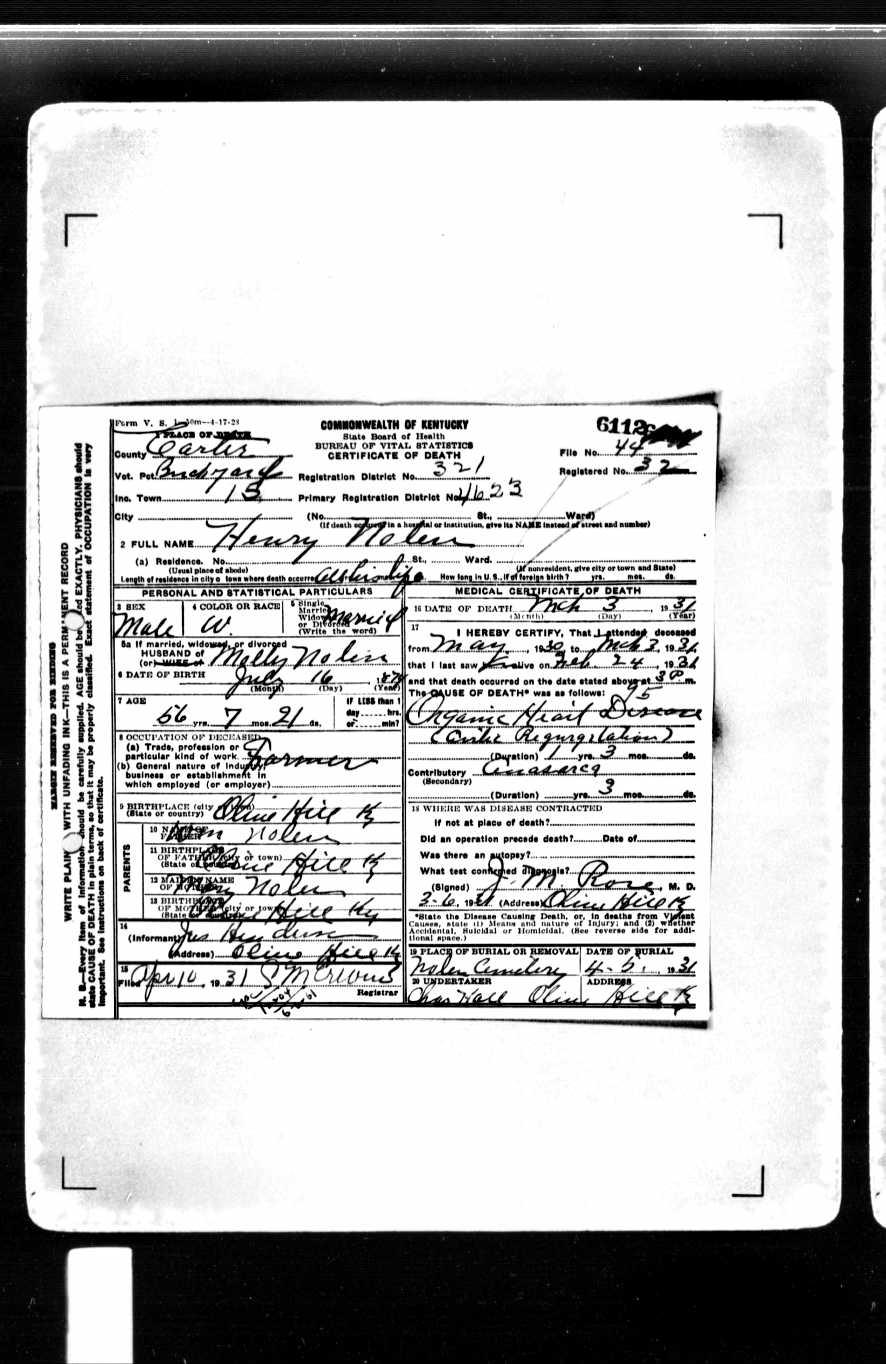 MARGIN RESERVED FOR BINDING
WRITE PLAINLY WITH UNFADING INK—THIS IS A PERMANENT RECORD
N. B.—Every item of information should be carefully supplied. AGE should be stated EXACTLY. PHYSICIANS should
state CAUSE OF DEATH in plain terms, so that it may be properly classified. Exact statement of OCCUPATION is very
important. See instructions on back of certificate.
Form V. S. 1- 4-17-28
1 PLACE OF DEATH
County Carter
Vot. Pct. Brickyard
Inc. Town 13
City (No. St., Ward)
COMMONWEALTH OF KENTUCKY
State Board of Health
BUREAU OF VITAL STATISTICS
CERTIFICATE OF DEATH
Registration District No. 321
Primary Registration District No. 4623
6112
File No. 44
Registered No. 32
(If death occurred in a hospital or institution, give its NAME instead of street and number)
2 FULL NAME Henry Nolen
(a) Residence. No. St., Ward.
(Usual place of abode) (If nonresident, give city or town and State)
Length of residence in city or town where death occurred all his life How long in U. S., if of foreign birth? yrs. mos. ds.
PERSONAL AND STATISTICAL PARTICULARS
3 SEX
Male
4 COLOR OR RACE
W.
5 Single
Married
Widowed
or Divorced
(Write the word)
Married
5a If married, widowed, or divorced
HUSBAND of
(or) WIFE of Molly Nolen
6 DATE OF BIRTH July 16, 187
(Month) (Day) (Year)
7 AGE
56 yrs. 7 mos. 21 ds.
IF LESS than 1
day hrs.
or min?
8 OCCUPATION OF DECEASED
(a) Trade, profession or
particular kind of work Farmer
(b) General nature of industry
business or establishment in
which employed (or employer)
9 BIRTHPLACE (city or town)
(State or country) Olive Hill Ky
PARENTS
10 NAME OF
FATHER Nolen
11 BIRTHPLACE
OF FATHER (city or town)
(State or country) Olive Hill Ky
12 MAIDEN NAME
OF MOTHER Nolen
13 BIRTHPLACE
OF MOTHER (city or town)
(State or country) Olive Hill Ky
14
(Informant) Jas Henderson
(Address) Olive Hill Ky
15
Filed Apr 10, 1931
Registrar
MEDICAL CERTIFICATE OF DEATH
16 DATE OF DEATH Mch 3, 1931
(Month) (Day) (Year)
17
I HEREBY CERTIFY, That I attended deceased
from May, 1930, to Mch 3, 1931,
that I last saw alive on Feb 24, 1931
and that death occurred on the date stated above at 3 P m.
The CAUSE OF DEATH* was as follows: 95
Organic Heart Disease
Regurgitation)
(Duration) 1 yrs. 3 mos. ds.
Contributory Anasarca
(Secondary)
(Duration) yrs. 3 mos. ds.
18 WHERE WAS DISEASE CONTRACTED
If not at place of death?
Did an operation precede death? Date of
Was there an autopsy?
What test confirmed diagnosis?
(Signed) J. M. Rose, M. D.
3-6, 1931 (Address) Olive Hill Ky
*State the Disease Causing Death, or, in deaths from Violent
Causes, state (1) Means and nature of Injury; and (2) whether
Accidental, Suicidal or Homicidal. (See reverse side for addi-
tional space.)
19 PLACE OF BURIAL OR REMOVAL
Nolen Cemetery
DATE OF BURIAL
4-5, 1931
20 UNDERTAKER
Chas Hall
ADDRESS
Olive Hill Ky